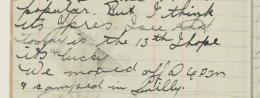 popular. But I think
its pres
today is the 13th I hope
its lucky
We moved off at 4 pm
& camped in Gilly.